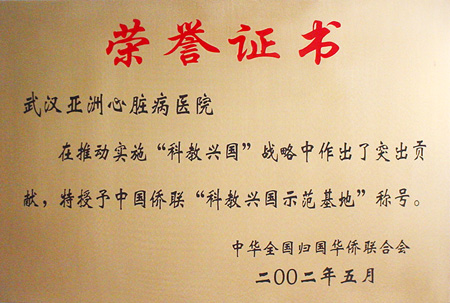 荣誉证书
武汉亚洲心脏病医院
在推动实施“科教兴国”战略中作出了突出贡
献，特授予中国侨联“科教兴国示范基地”称号。
中华全国归国华侨联合会
二〇〇二年五月